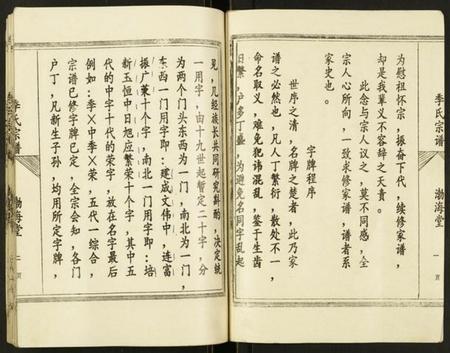 季氏宗谱
渤海堂
一页
为慰祖怀宗，振奋下代，续修家谱，
却是我辈义不容辞之天责。
此念与宗人议之，莫不同感，全
宗人心所向，一致求修家谱，谱者系
家史也。
字牌程序
世序之清，名牌之楚者，此乃家
谱之必然也，凡人丁繁衍，散处不一，
命名取义，难免犯讳混乱，鉴于生齿
日繁，户多丁盛，为避免名同字乱起
见，几经族长共同研究斟酌，决定统
一用字，由十九世起暂定二十字，分
为两个门头东西为一门，南北为一门，
东西一门用字即：建成文伟中，连富
振广兼十个字，南北一门用字即：培
新玉恒中日旭应繁荣十个字，其中五
代的中字十代的荣字，放在名字最后
例如：季×中季×荣，五代一综合，
宗谱已修字牌已定，全宗会知，各门
户丁，凡新生子孙，均用所定字牌，
季氏宗谱
渤海堂
二页